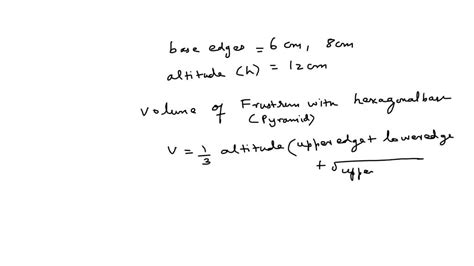 base edges = 6 cm, 8cm
altitude (h) = 12 cm
Volume of Frustrum with hexagonal base
(Pyramid)
V = 1/3 altitude (upper edge + lower edge
+ √upper